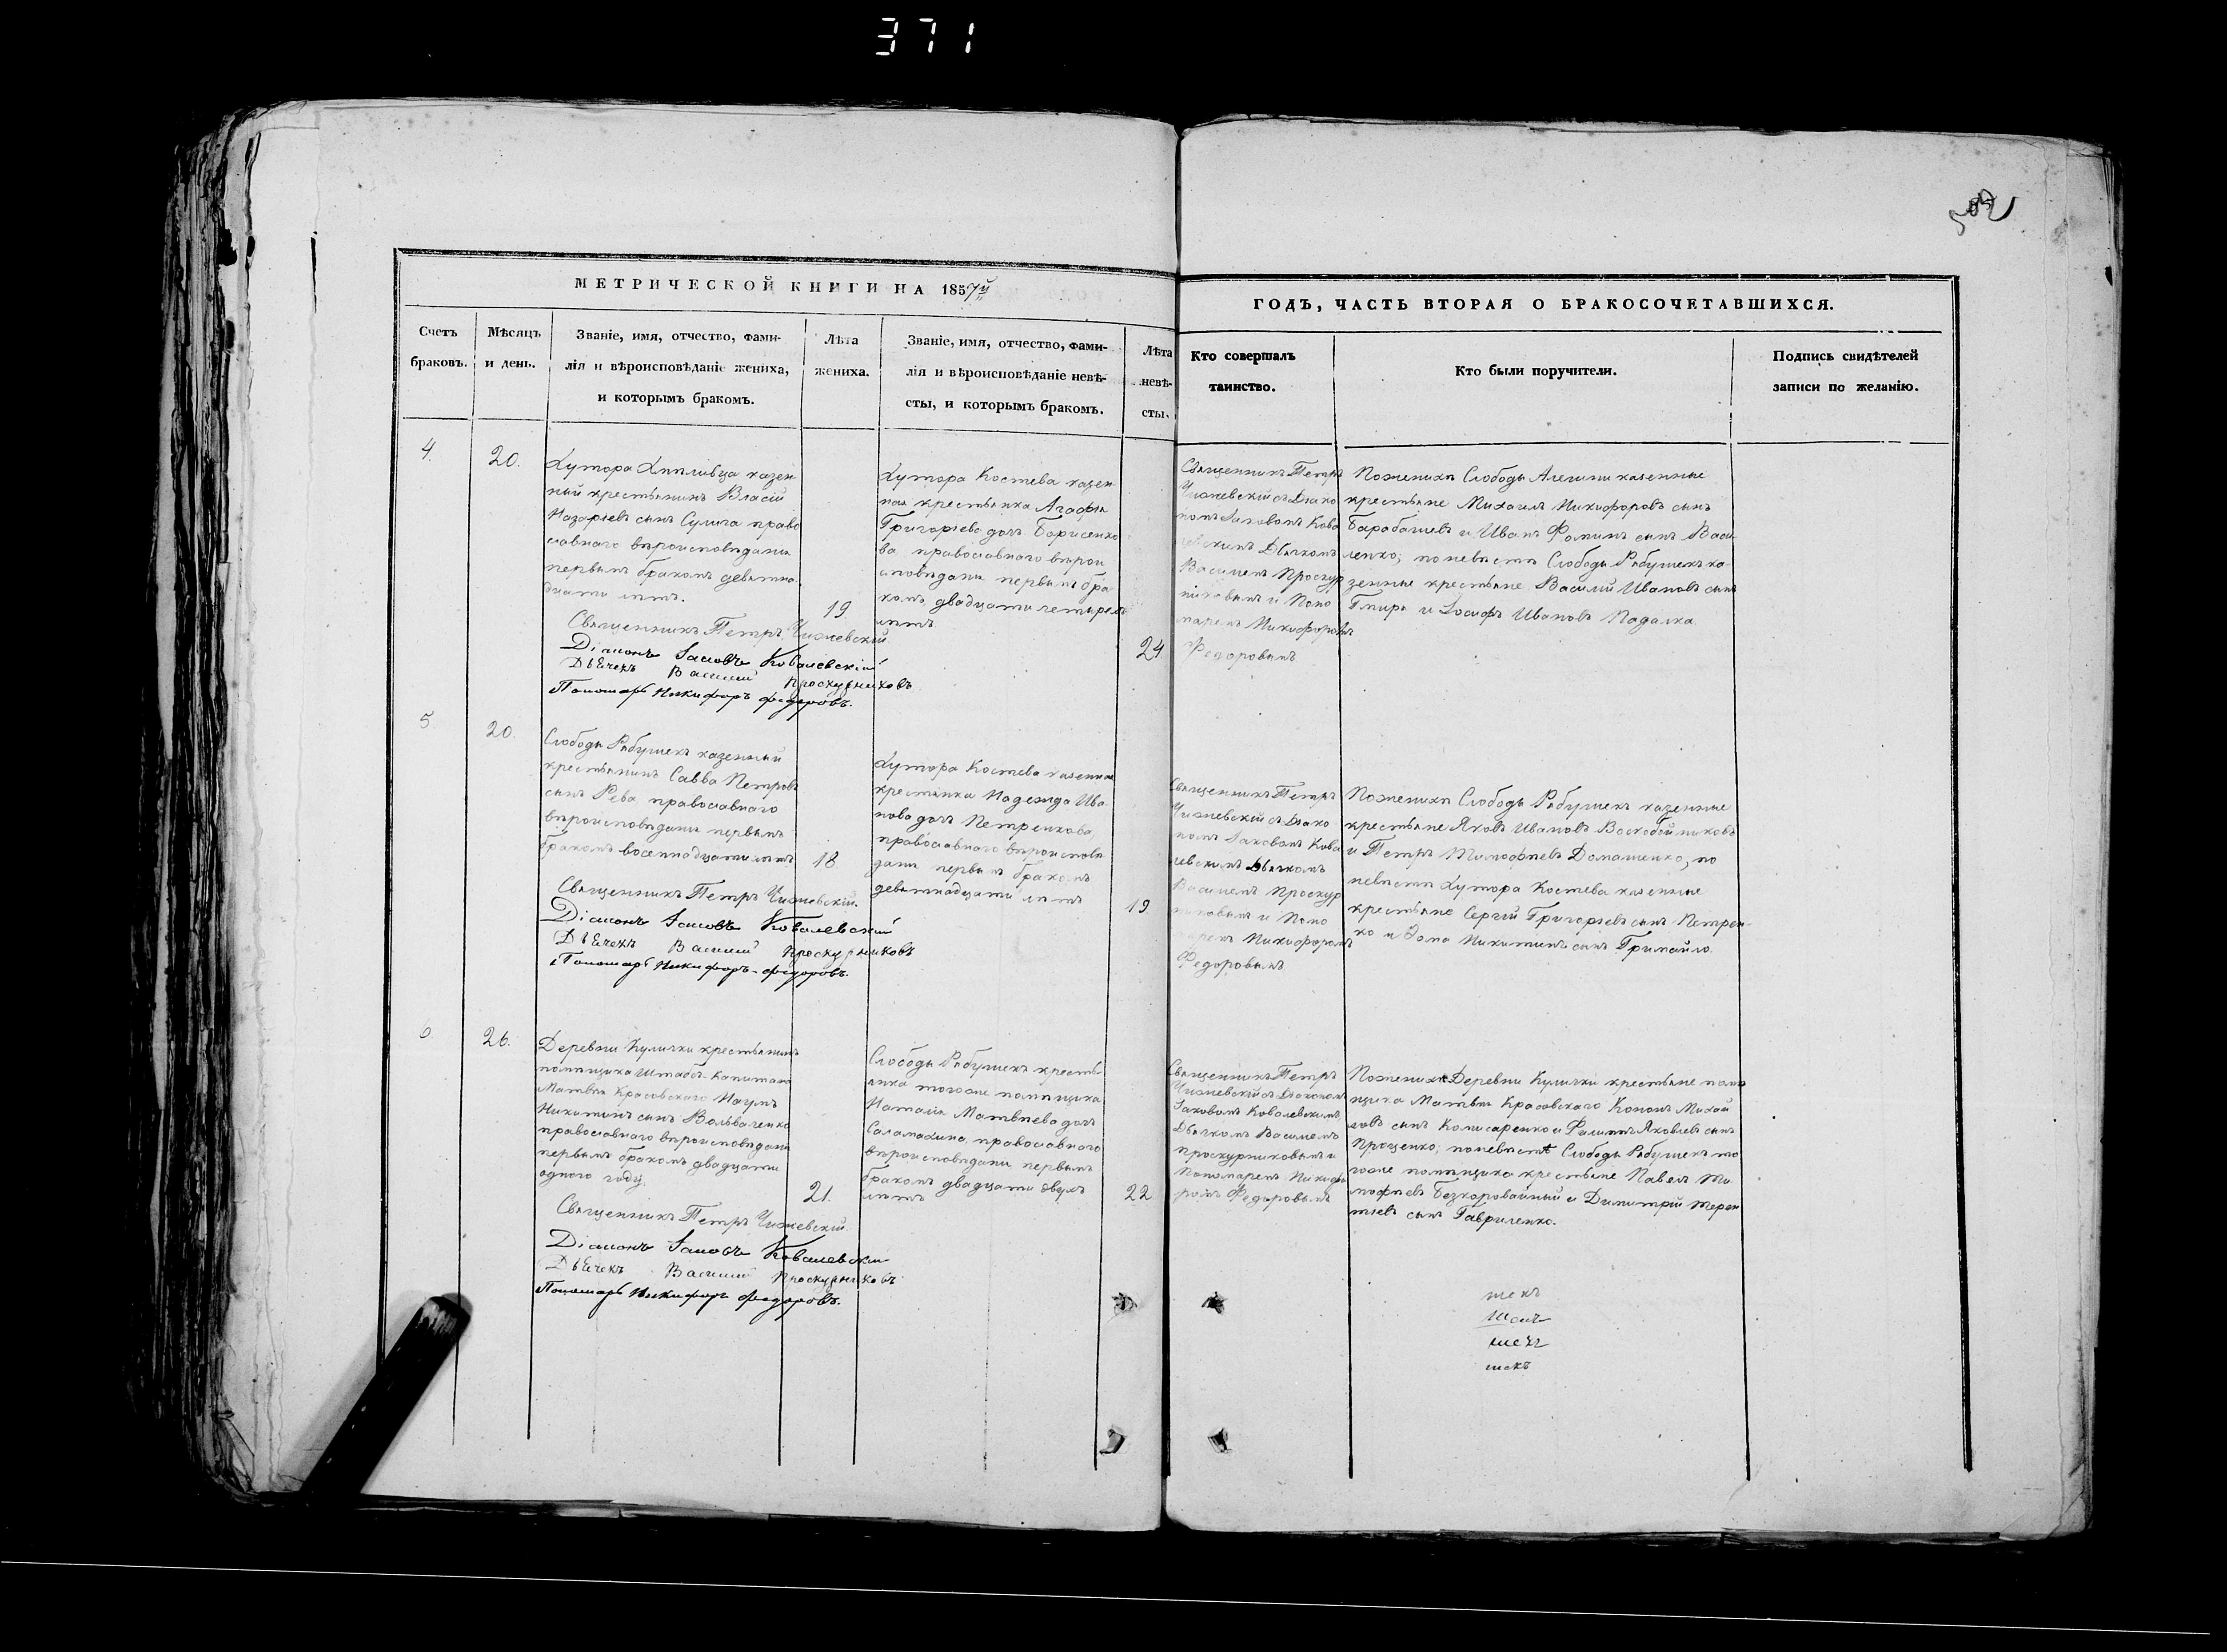 371
МЕТРИЧЕСКОЙ КНИГИ НА 1857й
ГОДЪ, ЧАСТЬ ВТОРАЯ О БРАКОСОЧЕТАВШИХСЯ.
Счетъ
браковъ.
Мѣсяцъ
и день.
Званіе, имя, отчество, фами-
лія и вѣроисповѣданіе жениха,
и которымъ бракомъ.
Лѣта
жениха.
Званіе, имя, отчество, фами-
лія и вѣроисповѣданіе невѣ-
сты, и которымъ бракомъ.
Лѣта
невѣ-
сты.
Кто совершалъ
таинство.
Кто были поручители.
Подпись свидѣтелей
записи по желанію.
4.
20.
Хутора казен
ный крестьянинъ Власій
Назарьевъ сынъ Сулига право
славнаго вѣроисповѣданія
первымъ бракомъ девятна
дцати лѣтъ.
19.
Священникъ Петръ Чижевскій
Діаконъ Іаковъ Ковалевскій
Дьячекъ Василій Проскурниковъ
Пономарь Никифоръ Федоровъ.
Хутора Костева казен
ная крестьянка Агафія
Григорьева дочь Борисенко
ва православнаго вѣрои
сповѣданія первымъ бра
комъ, двадцати четырехъ
лѣтъ
24
Священникъ Петръ
Чижевскій съ Діако
номъ Іаковомъ Кова
левскимъ Дьячкомъ
Василіемъ Проскур
никовымъ и Поно
маремъ Никифоромъ
Федоровымъ
По женихѣ Слободы казенные
крестьяне Михаилъ Никифоровъ сынъ
Барабашевъ и Иванъ Фоминъ сынъ Васи
ленко; по невѣстѣ Слободы Рябушекъ ка-
зенные крестьяне Василій Ивановъ сынъ
и Іосифъ Ивановъ Падалка
5.
20.
Слободы Рябушекъ казенный
крестьянинъ Савва Петровъ
сынъ Рева православнаго
вѣроисповѣданія первымъ
бракомъ восемнадцати лѣтъ
18
Священникъ Петръ Чижевскій.
Діаконъ Іаковъ Ковалевскій
Дьячекъ Василій Проскурниковъ
Пономарь Никифоръ Федоровъ.
Хутора Костева казенная
крестьянка Надежда Ива
нова дочь Петренкова,
православнаго вѣроисповѣ
данія первымъ бракомъ
девятнадцати лѣтъ
19
Священникъ Петръ
Чижевскій съ Діако
номъ Іаковомъ Кова
левскимъ Дьячкомъ
Василіемъ Проскур
никовымъ и Поно
маремъ Никифоромъ
Федоровымъ
По женихѣ Слободы Рябушекъ казенные
крестьяне Яковъ Ивановъ Воскобойниковъ
и Петръ Тимофѣевъ Домашенко, по
невѣстѣ Хутора Костева казенные
крестьяне Сергій Григорьевъ сынъ Петрен-
ко и Фома Никитинъ сынъ Гримайло.
6
26.
Деревни Кулички крестьянинъ
помѣщика Штабсъ-Капитана
Матвѣя Красовскаго Наумъ
Никитинъ сынъ
православнаго вѣроисповѣданія
первымъ бракомъ двадцати
одного году.
21.
Священникъ Петръ Чижевскій.
Діаконъ Іаковъ Ковалевскій
Дьячекъ Василій Проскурниковъ
Пономарь Никифоръ Федоровъ.
Слободы Рябушекъ кресть
янка тогоже помѣщика
Наталія Матвѣева дочь
Саламахина, православнаго
вѣроисповѣданія, первымъ
бракомъ двадцати двухъ
лѣтъ
22
Священникъ Петръ
Чижевскій съ Діакономъ
Іаковомъ Ковалевскимъ,
Дьячкомъ Василіемъ
Проскурниковымъ и
Пономаремъ Никифо
ромъ Федоровымъ
По женихѣ Деревни Кулички крестьяне помѣ
щика Матвѣя Красовскаго Кононъ Михай
ловъ сынъ Комисаренко и Филиппъ Яковлевъ сынъ
Проценко; по невѣстѣ Слободы Рябушекъ то
гоже помѣщика крестьяне Павелъ Ти
мофѣевъ Безкоровайный и Димитрій Терен
тьевъ сынъ Гавриленко.